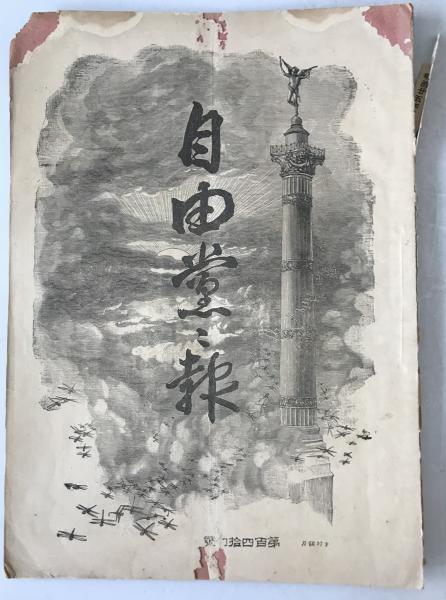 自由黨々報
第百四拾號